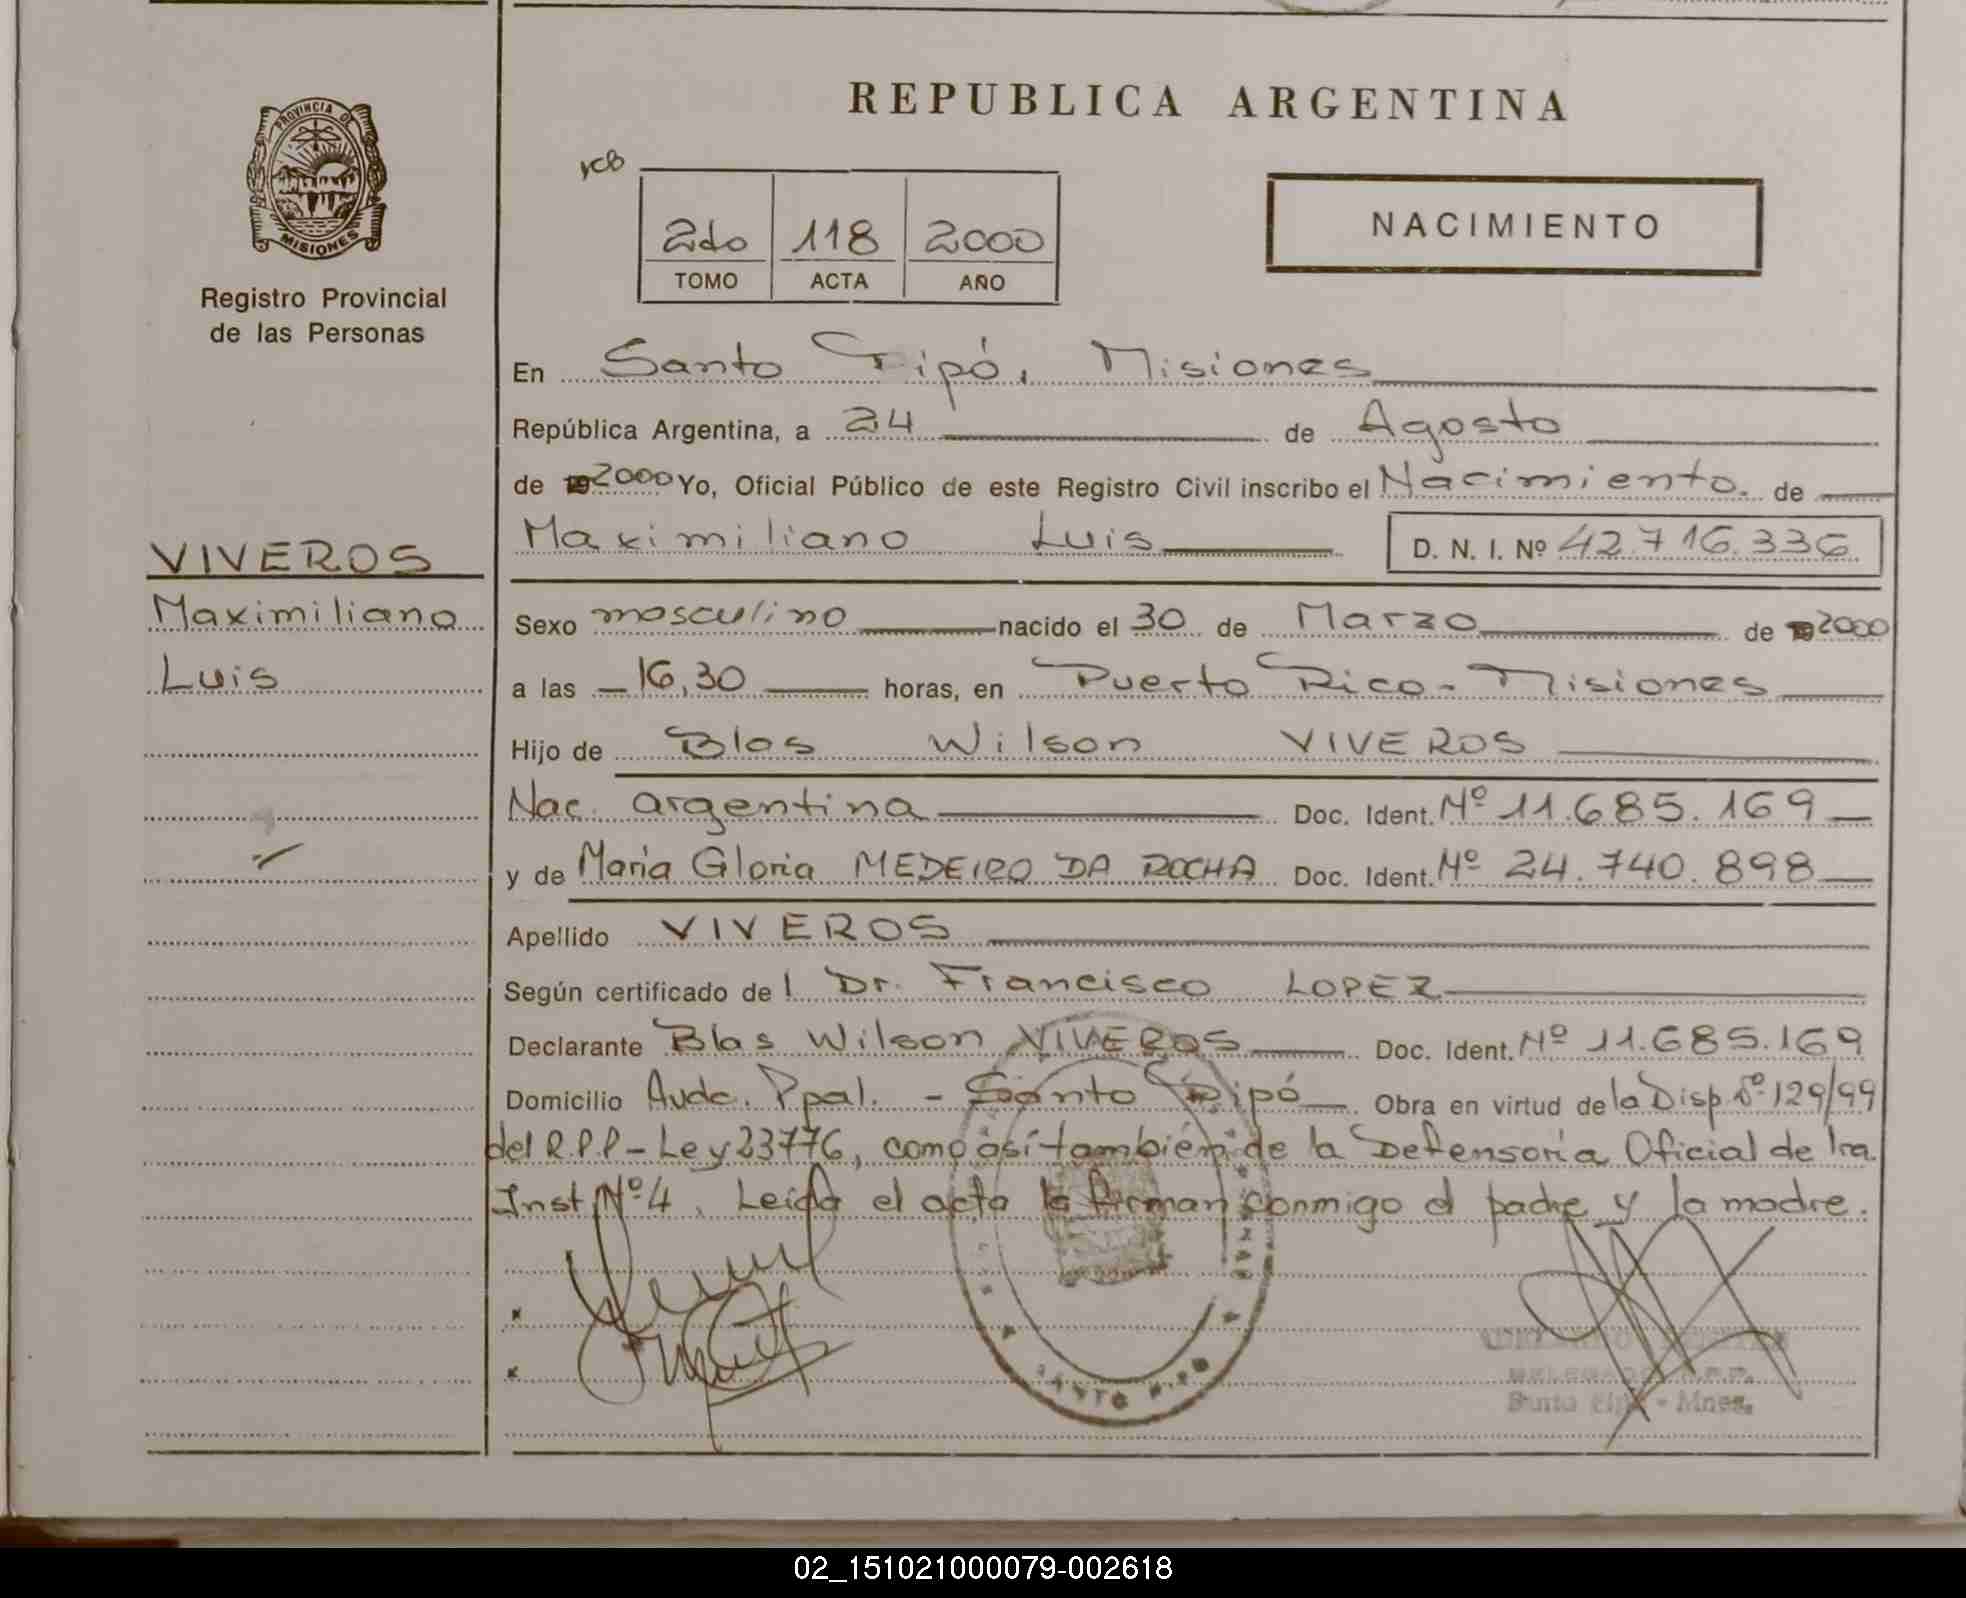 REPUBLICA ARGENTINA
PROVINCIA DE
MISIONES
Registro Provincial
de las Personas
2do 118 2000
TOMO ACTA AÑO
NACIMIENTO
En Santo Pipó, Misiones
República Argentina, a 24 de Agosto
de 19 2000 Yo, Oficial Público de este Registro Civil inscribo el Nacimiento. de
Maximiliano Luis D. N. I. Nº 42.716.336
VIVEROS
Maximiliano
Luis
Sexo masculino nacido el 30 de Marzo de 19 2000
a las 16,30 horas, en Puerto Rico - Misiones
Hijo de Blas Wilson VIVEROS
Nac. argentina Doc. Ident. Nº 11.685.169
y de Maria Gloria MEDEIRO DA ROCHA Doc. Ident. Nº 24.740.898
Apellido VIVEROS
Según certificado del Dr. Francisco LOPEZ
Declarante Blas Wilson VIVEROS Doc. Ident. Nº 11.685.169
Domicilio Avda. Ppal. - Santo Pipó Obra en virtud de la Disp. Nº 129/99
del R.P.P - Ley 23776, como así también de la Defensoría Oficial de 1ra.
Inst Nº 4. Leida el acta la firman conmigo el padre y la madre.
SANTO PIPO
Santo Pipó - Mnes.
02_151021000079-002618